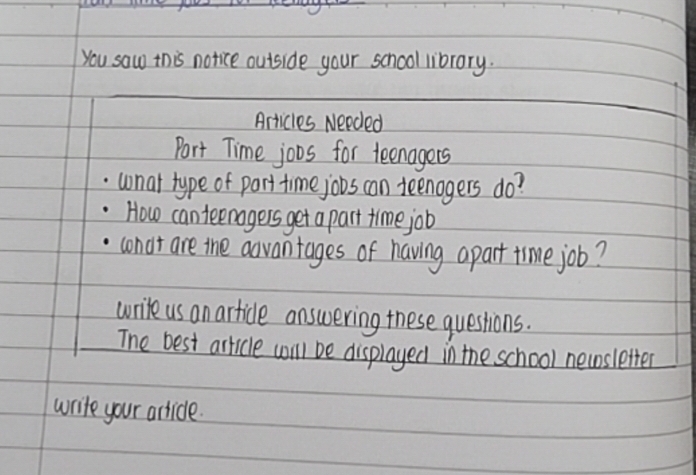 Part Time jobs for teenagers
You saw this notice outside your school library.
Articles Needed
Part Time jobs for teenagers
• What type of part time jobs can teenagers do?
• How can teenagers get a part time job
• What are the advantages of having a part time job?
Write us an article answering these questions.
The best article will be displayed in the school newsletter
Write your article.